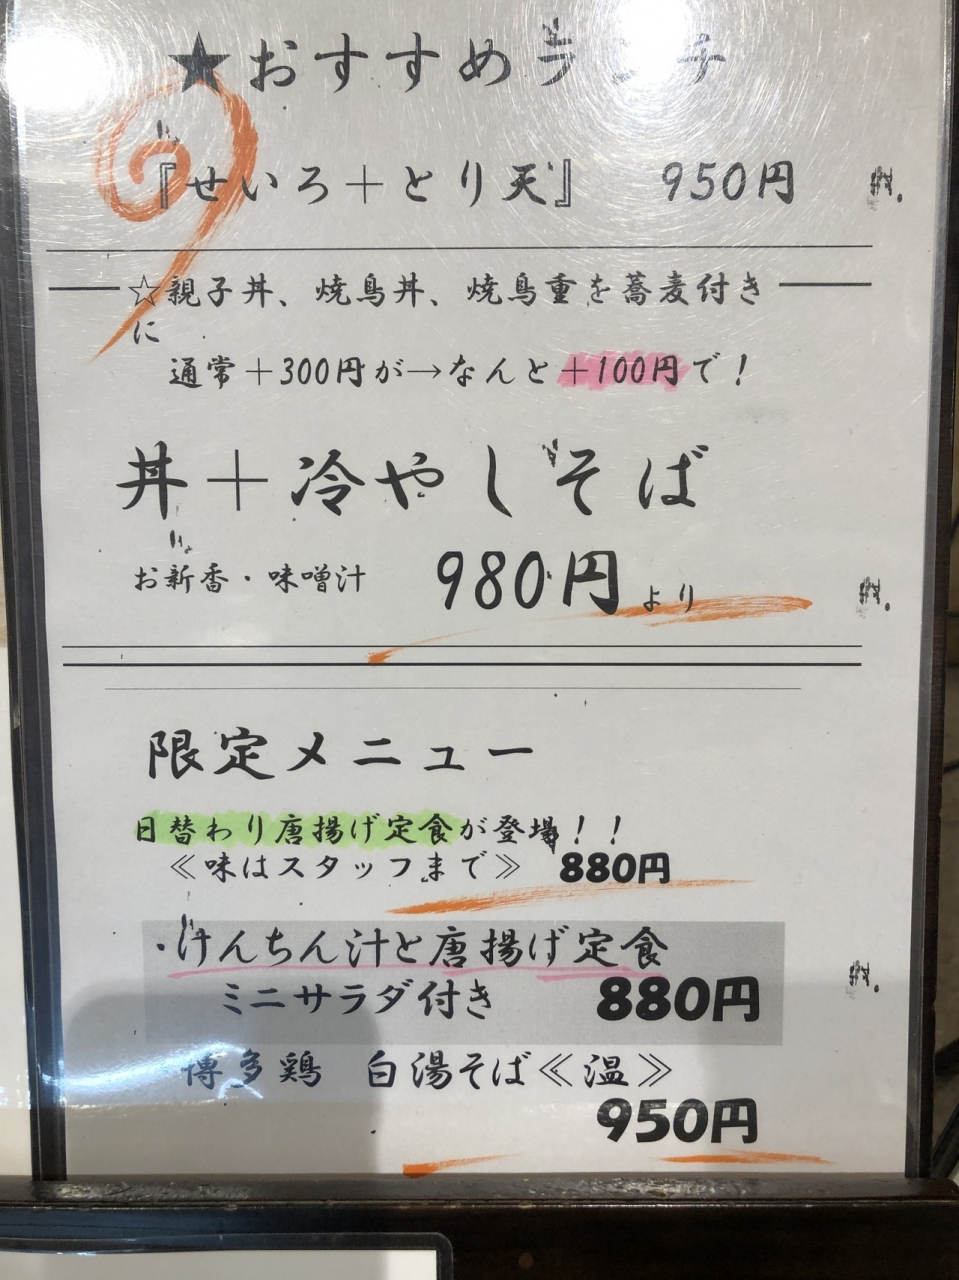 ★おすすめランチ
『せいろ＋とり天』　950円
☆親子丼、焼鳥丼、焼鳥重を蕎麦付き
に
通常＋300円が→なんと＋100円で！
丼＋冷やしそば
お新香・味噌汁　980円より
限定メニュー
日替わり唐揚げ定食が登場！！
≪味はスタッフまで≫　880円
・けんちん汁と唐揚げ定食
ミニサラダ付き　880円
博多鶏　白湯そば≪温≫
950円